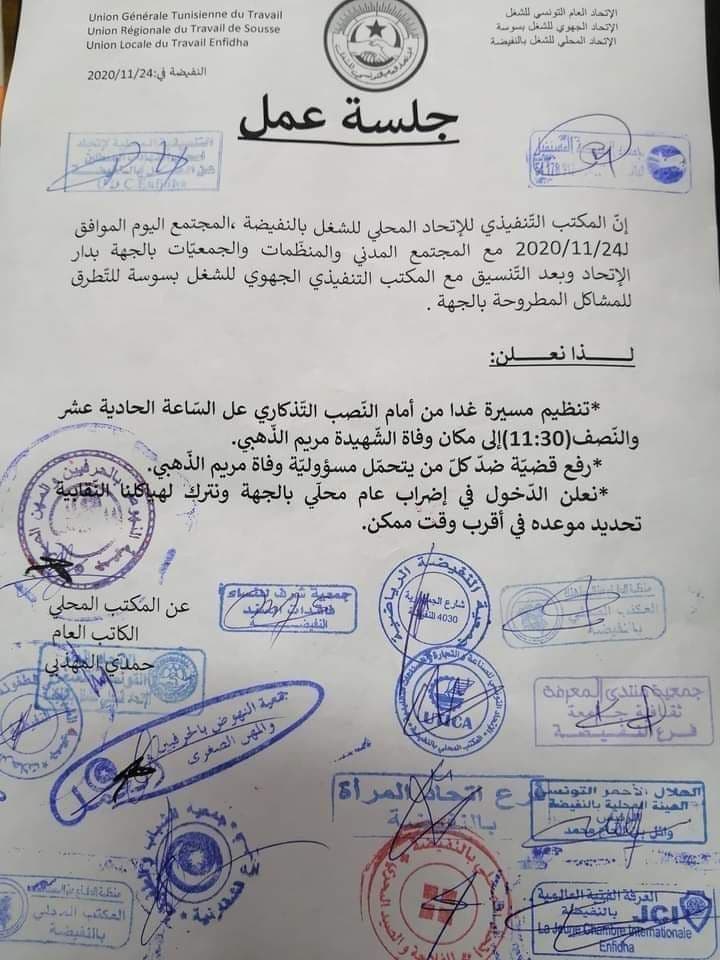 Union Générale Tunisienne du Travail
Union Régionale du Travail de Sousse
Union Locale du Travail Enfidha
الإتحاد العام التونسي للشغل
الإتحاد الجهوي للشغل بسوسة
الإتحاد المحلي للشغل بالنفيضة
النفيضة في:2020/11/24
جلسة عمل
إنّ المكتب التّنفيذي للإتحاد المحلي للشغل بالنفيضة ،المجتمع اليوم الموافق
لـ2020/11/24 مع المجتمع المدني والمنظّمات والجمعيّات بالجهة بدار
الإتحاد وبعد التّنسيق مع المكتب التنفيذي الجهوي للشغل بسوسة للتّطرق
للمشاكل المطروحة بالجهة .
لـــــذا نعلـــــن:
*تنظيم مسيرة غدا من أمام النّصب التّذكاري عل السّاعة الحادية عشر
والنّصف(11:30)إلى مكان وفاة الشّهيدة مريم الذّهبي.
*رفع قضيّة ضدّ كلّ من يتحمّل مسؤوليّة وفاة مريم الذّهبي.
*نعلن الدّخول في إضراب عام محلّي بالجهة ونترك لهياكلنا النّقابية
تحديد موعده في أقرب وقت ممكن.
عن المكتب المحلي
الكاتب العام
حمدي المهذبي
جمعية شرف لنساء
فاقدات السند
النفيضة
جمعية النفيضة الرياضية
شارع الجمهورية
4030 النفيضة
المكتب المحلي
بالنفيضة
UNICA
جمعية منتدى المعرفة
ثقافية جامعة
فرع النفيضة
جمعية النهوض بالحرفيين
والمهن الصغرى
فرع اتحاد المرأة
بالنفيضة
الهلال الأحمر التونسي
الهيئة المحلية بالنفيضة
الرئيس
المكتب المحلي
بالنفيضة
الغرفة الفتية العالمية
بالنفيضة
JCI
La Jeune Chambre Internationale
Enfidha